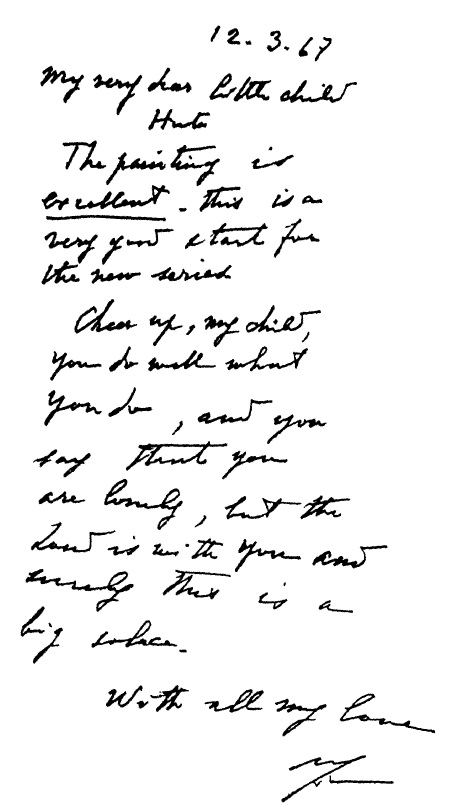 12.3.67
My very dear little child
Huta
The painting is
excellent. this is a
very good start for
the new series
Cheer up, my child,
you do well what
you do, and you
say that you
are lonely, but the
Lord is with you and
surely this is a
big solace.
With all my love